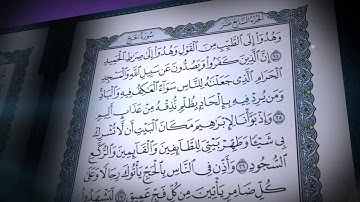 الجزء السابع عشر
سورة الحج
وَهُدُوٓا۟ إِلَى ٱلطَّيِّبِ مِنَ ٱلْقَوْلِ وَهُدُوٓا۟ إِلَىٰ صِرَٰطِ ٱلْحَمِيدِ
٢٤ إِنَّ ٱلَّذِينَ كَفَرُوا۟ وَيَصُدُّونَ عَن سَبِيلِ ٱللَّهِ وَٱلْمَسْجِدِ
ٱلْحَرَامِ ٱلَّذِى جَعَلْنَٰهُ لِلنَّاسِ سَوَآءً ٱلْعَٰكِفُ فِيهِ وَٱلْبَادِ
وَمَن يُرِدْ فِيهِ بِإِلْحَادٍۭ بِظُلْمٍ نُّذِقْهُ مِنْ عَذَابٍ أَلِيمٍ
٢٥ وَإِذْ بَوَّأْنَا لِإِبْرَٰهِيمَ مَكَانَ ٱلْبَيْتِ أَن لَّا تُشْرِكْ
بِى شَيْـًٔا وَطَهِّرْ بَيْتِىَ لِلطَّآئِفِينَ وَٱلْقَآئِمِينَ وَٱلرُّكَّعِ
ٱلسُّجُودِ ٢٦ وَأَذِّن فِى ٱلنَّاسِ بِٱلْحَجِّ يَأْتُوكَ رِجَالًا وَعَلَىٰ
كُلِّ ضَامِرٍ يَأْتِينَ مِن كُلِّ فَجٍّ عَمِيقٍ ٢٧ لِّيَشْهَدُوا۟